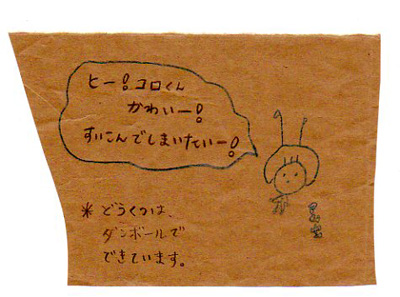 ヒー!コロくん
かわいー!
すいこんでしまいたいー!
* どうくつは、
ダンボールで
できています。